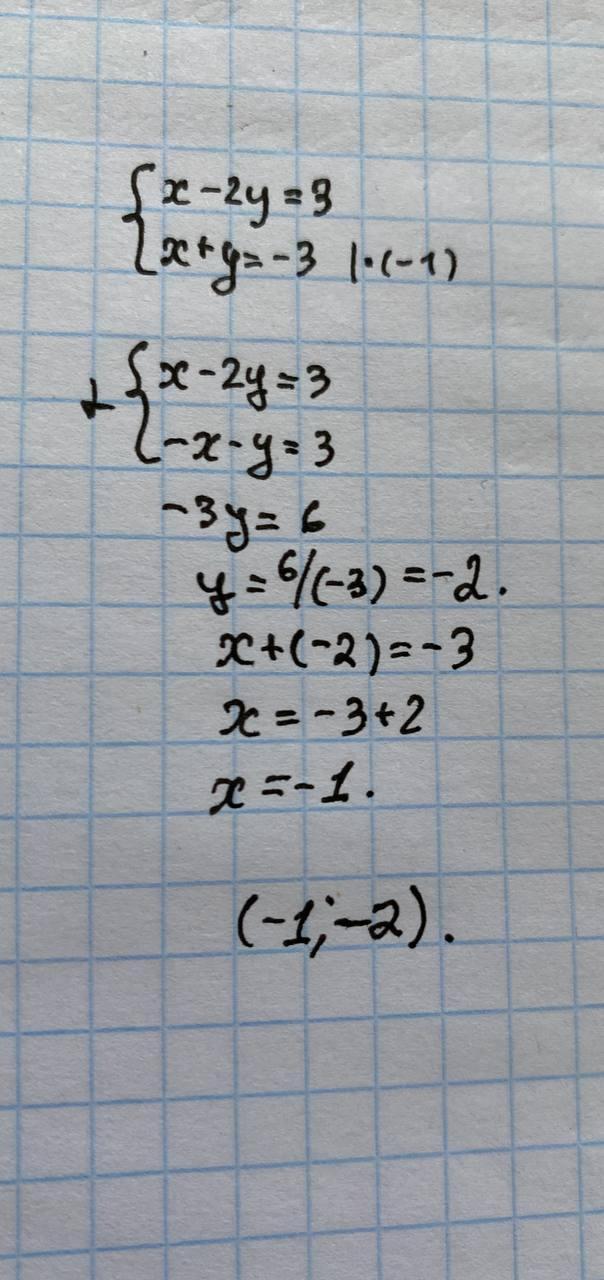 {x-2y=3
{x+y=-3 |·(-1)
+{x-2y=3
{-x-y=3
-3y=6
y=6/(-3)=-2.
x+(-2)=-3
x=-3+2
x=-1.
(-1;-2).